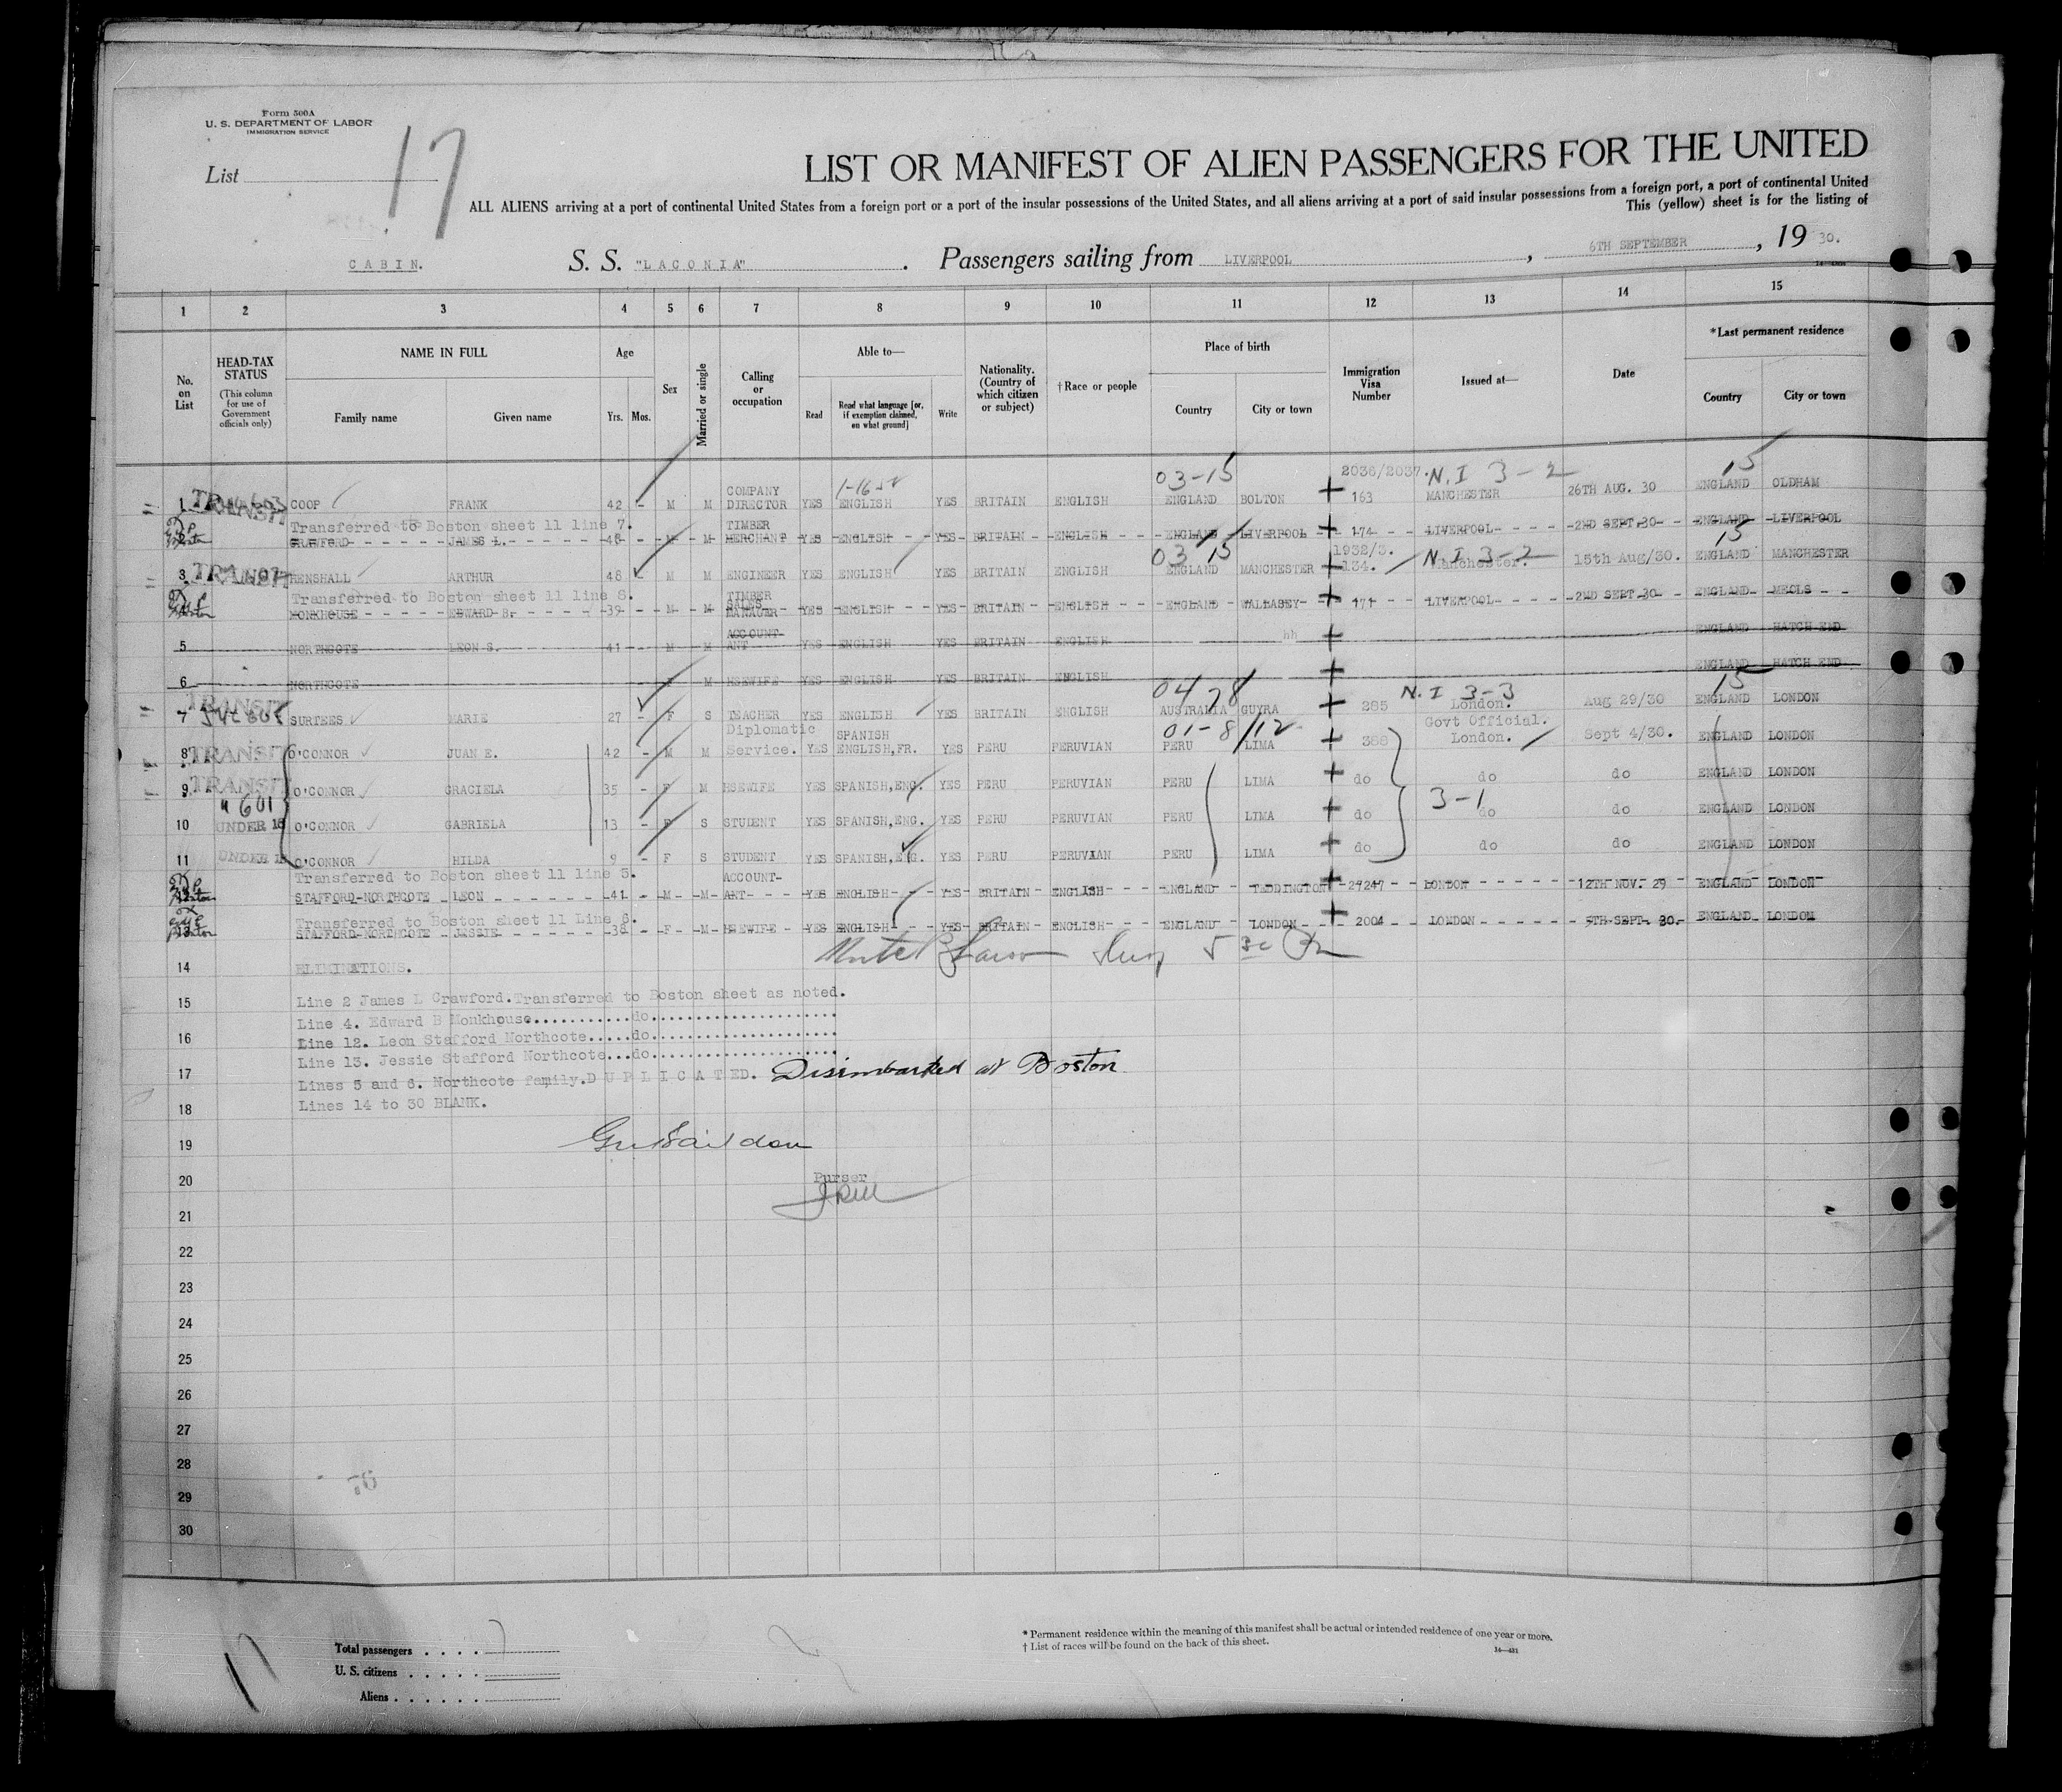 Form 500A
U. S. DEPARTMENT OF LABOR
IMMIGRATION SERVICE
List
17
LIST OR MANIFEST OF ALIEN PASSENGERS FOR THE UNITED
ALL ALIENS arriving at a port of continental United States from a foreign port or a port of the insular possessions of the United States, and all aliens arriving at a port of said insular possessions from a foreign port, a port of continental United
This (yellow) sheet is for the listing of
CABIN. S. S. "LACONIA". Passengers sailing from LIVERPOOL, 6TH SEPTEMBER, 19 30.
1 2 3 4 5 6 7 8 9 10 11 12 13 14 15
No. on List
HEAD-TAX STATUS
(This column for use of Government officials only)
NAME IN FULL
Family name Given name
Age
Yrs. Mos.
Sex
Married or single
Calling or occupation
Able to—
Read
Read what language [or, if exemption claimed, on what ground]
Write
Nationality. (Country of which citizen or subject)
†Race or people
Place of birth
Country City or town
Immigration Visa Number
Issued at—
Date
*Last permanent residence
Country City or town
03-15 2036/2037. N.I 3-2 15
1 TRANSIT COOP FRANK 42 - M M COMPANY DIRECTOR YES ENGLISH YES BRITAIN ENGLISH ENGLAND BOLTON 163 MANCHESTER 26TH AUG. 30 ENGLAND OLDHAM
Transferred to Boston sheet 11 line 7.
2 CRAWFORD JAMES L. 48 M M TIMBER MERCHANT YES ENGLISH YES BRITAIN ENGLISH ENGLAND LIVERPOOL 174 LIVERPOOL 2ND SEPT 30 ENGLAND LIVERPOOL
03 15 1938/3. N.I 3-2 15
3 TRANSIT HENSHALL ARTHUR 48 - M M ENGINEER YES ENGLISH YES BRITAIN ENGLISH ENGLAND MANCHESTER 134. Manchester. 15th Aug/30. ENGLAND MANCHESTER
Transferred to Boston sheet 11 line 8.
4 MONKHOUSE EDWARD B. 39 M M TIMBER SALES MANAGER YES ENGLISH YES BRITAIN ENGLISH ENGLAND WALLASEY 171 LIVERPOOL 2ND SEPT 30 ENGLAND MEOLS
5 NORTHCOTE LEON S. 41 - M M ACCOUNT-ANT YES ENGLISH YES BRITAIN ENGLISH ENGLAND HATCH END
6 NORTHCOTE M HSEWIFE YES ENGLISH YES BRITAIN ENGLISH ENGLAND HATCH END
04 78 N.I 3-3 15
7 TRANSIT SURTEES MARIE 27 - F S TEACHER YES ENGLISH YES BRITAIN ENGLISH AUSTRALIA GUYRA 285 London. Aug 29/30 ENGLAND LONDON
01-8/12
8 TRANSIT O'CONNOR JUAN E. 42 - M M Diplomatic Service. YES SPANISH ENGLISH,FR. YES PERU PERUVIAN PERU LIMA 388 Govt Official. London. Sept 4/30. ENGLAND LONDON
9 TRANSIT O'CONNOR GRACIELA 35 - F M HSEWIFE YES SPANISH,ENG. YES PERU PERUVIAN PERU LIMA do do do ENGLAND LONDON
" 601 3-1
10 UNDER 16 O'CONNOR GABRIELA 13 - F S STUDENT YES SPANISH,ENG. YES PERU PERUVIAN PERU LIMA do do do ENGLAND LONDON
11 UNDER 16 O'CONNOR HILDA 9 - F S STUDENT YES SPANISH,ENG. YES PERU PERUVIAN PERU LIMA do do do ENGLAND LONDON
Transferred to Boston sheet 11 line 5.
12 STAFFORD-NORTHCOTE LEON 41 - M M ACCOUNT-ANT YES ENGLISH YES BRITAIN ENGLISH ENGLAND TEDDINGTON 27247 LONDON 12TH NOV. 29 ENGLAND LONDON
Transferred to Boston sheet 11 Line 6.
13 STAFFORD-NORTHCOTE JESSIE 38 - F M HSEWIFE YES ENGLISH YES BRITAIN ENGLISH ENGLAND LONDON 2004 LONDON 5TH SEPT 30. ENGLAND LONDON
14 ELIMINATIONS.
15 Line 2 James L Crawford. Transferred to Boston sheet as noted.
Line 4. Edward B Monkhouse............do......................
16 Line 12. Leon Stafford Northcote.....do......................
Line 13. Jessie Stafford Northcote...do......................
17 Lines 5 and 6. Northcote family. DUPLICATED. Disimbarked at Boston
18 Lines 14 to 30 BLANK.
19
20 Purser
21
22
23
24
25
26
27
28
29
30
Total passengers
U. S. citizens
Aliens
17
* Permanent residence within the meaning of this manifest shall be actual or intended residence of one year or more.
† List of races will be found on the back of this sheet.